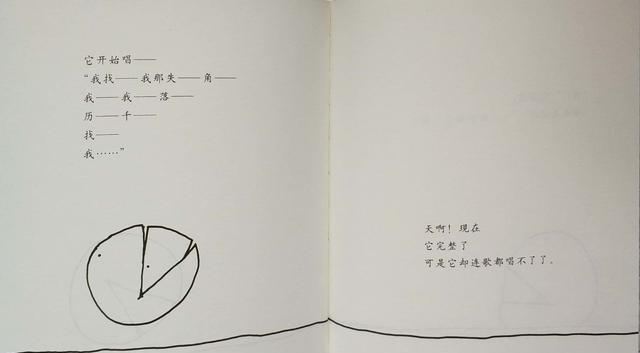 它开始唱——
“我找——我那失——角——
我——我——落——
历——千——
找——
我……”
天啊！现在
它完整了
可是它却连歌都唱不了了。